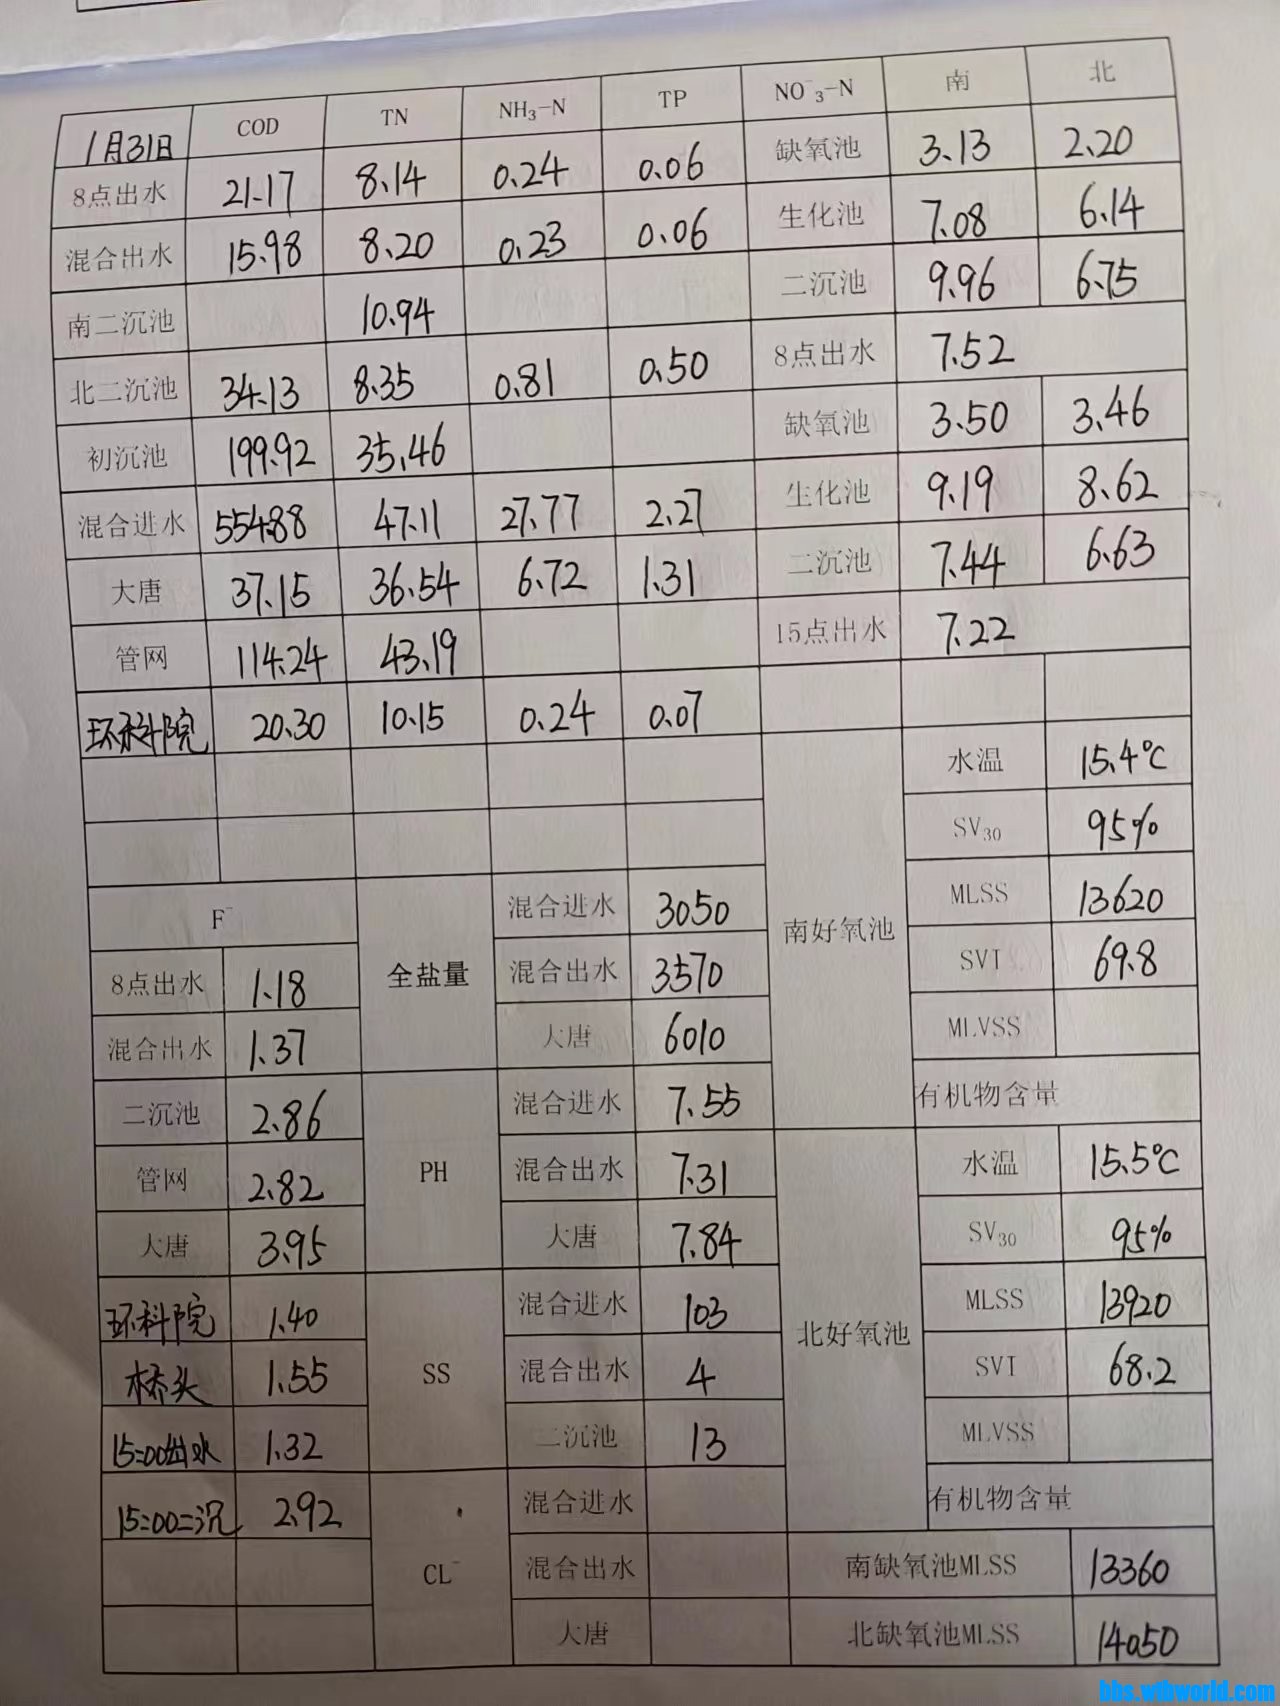 1月31日 COD TN NH₃-N TP NO⁻₃-N 南 北
8点出水 21.17 8.14 0.24 0.06 缺氧池 3.13 2.20
混合出水 15.98 8.20 0.23 0.06 生化池 7.08 6.14
南二沉池 10.94 二沉池 9.96 6.75
北二沉池 34.13 8.35 0.81 0.50 8点出水 7.52
初沉池 199.92 35.46 缺氧池 3.50 3.46
混合进水 554.88 47.11 27.77 2.27 生化池 9.19 8.62
大唐 37.15 36.54 6.72 1.31 二沉池 7.44 6.63
管网 114.24 43.19 15点出水 7.22
环科院 20.30 10.15 0.24 0.07
水温 15.4℃
SV₃₀ 95%
F⁻ 全盐量 混合进水 3050 南好氧池 MLSS 13620
8点出水 1.18 混合出水 3570 SVI 69.8
混合出水 1.37 大唐 6010 MLVSS
二沉池 2.86 PH 混合进水 7.55 有机物含量
管网 2.82 混合出水 7.31 水温 15.5℃
大唐 3.95 大唐 7.84 SV₃₀ 95%
环科院 1.40 SS 混合进水 103 北好氧池 MLSS 13920
桥头 1.55 混合出水 4 SVI 68.2
15:00出水 1.32 二沉池 13 MLVSS
15:00二沉 2.92 CL⁻ 混合进水 有机物含量
混合出水 南缺氧池MLSS 13360
大唐 北缺氧池MLSS 14050
bbs.wtbworld.com